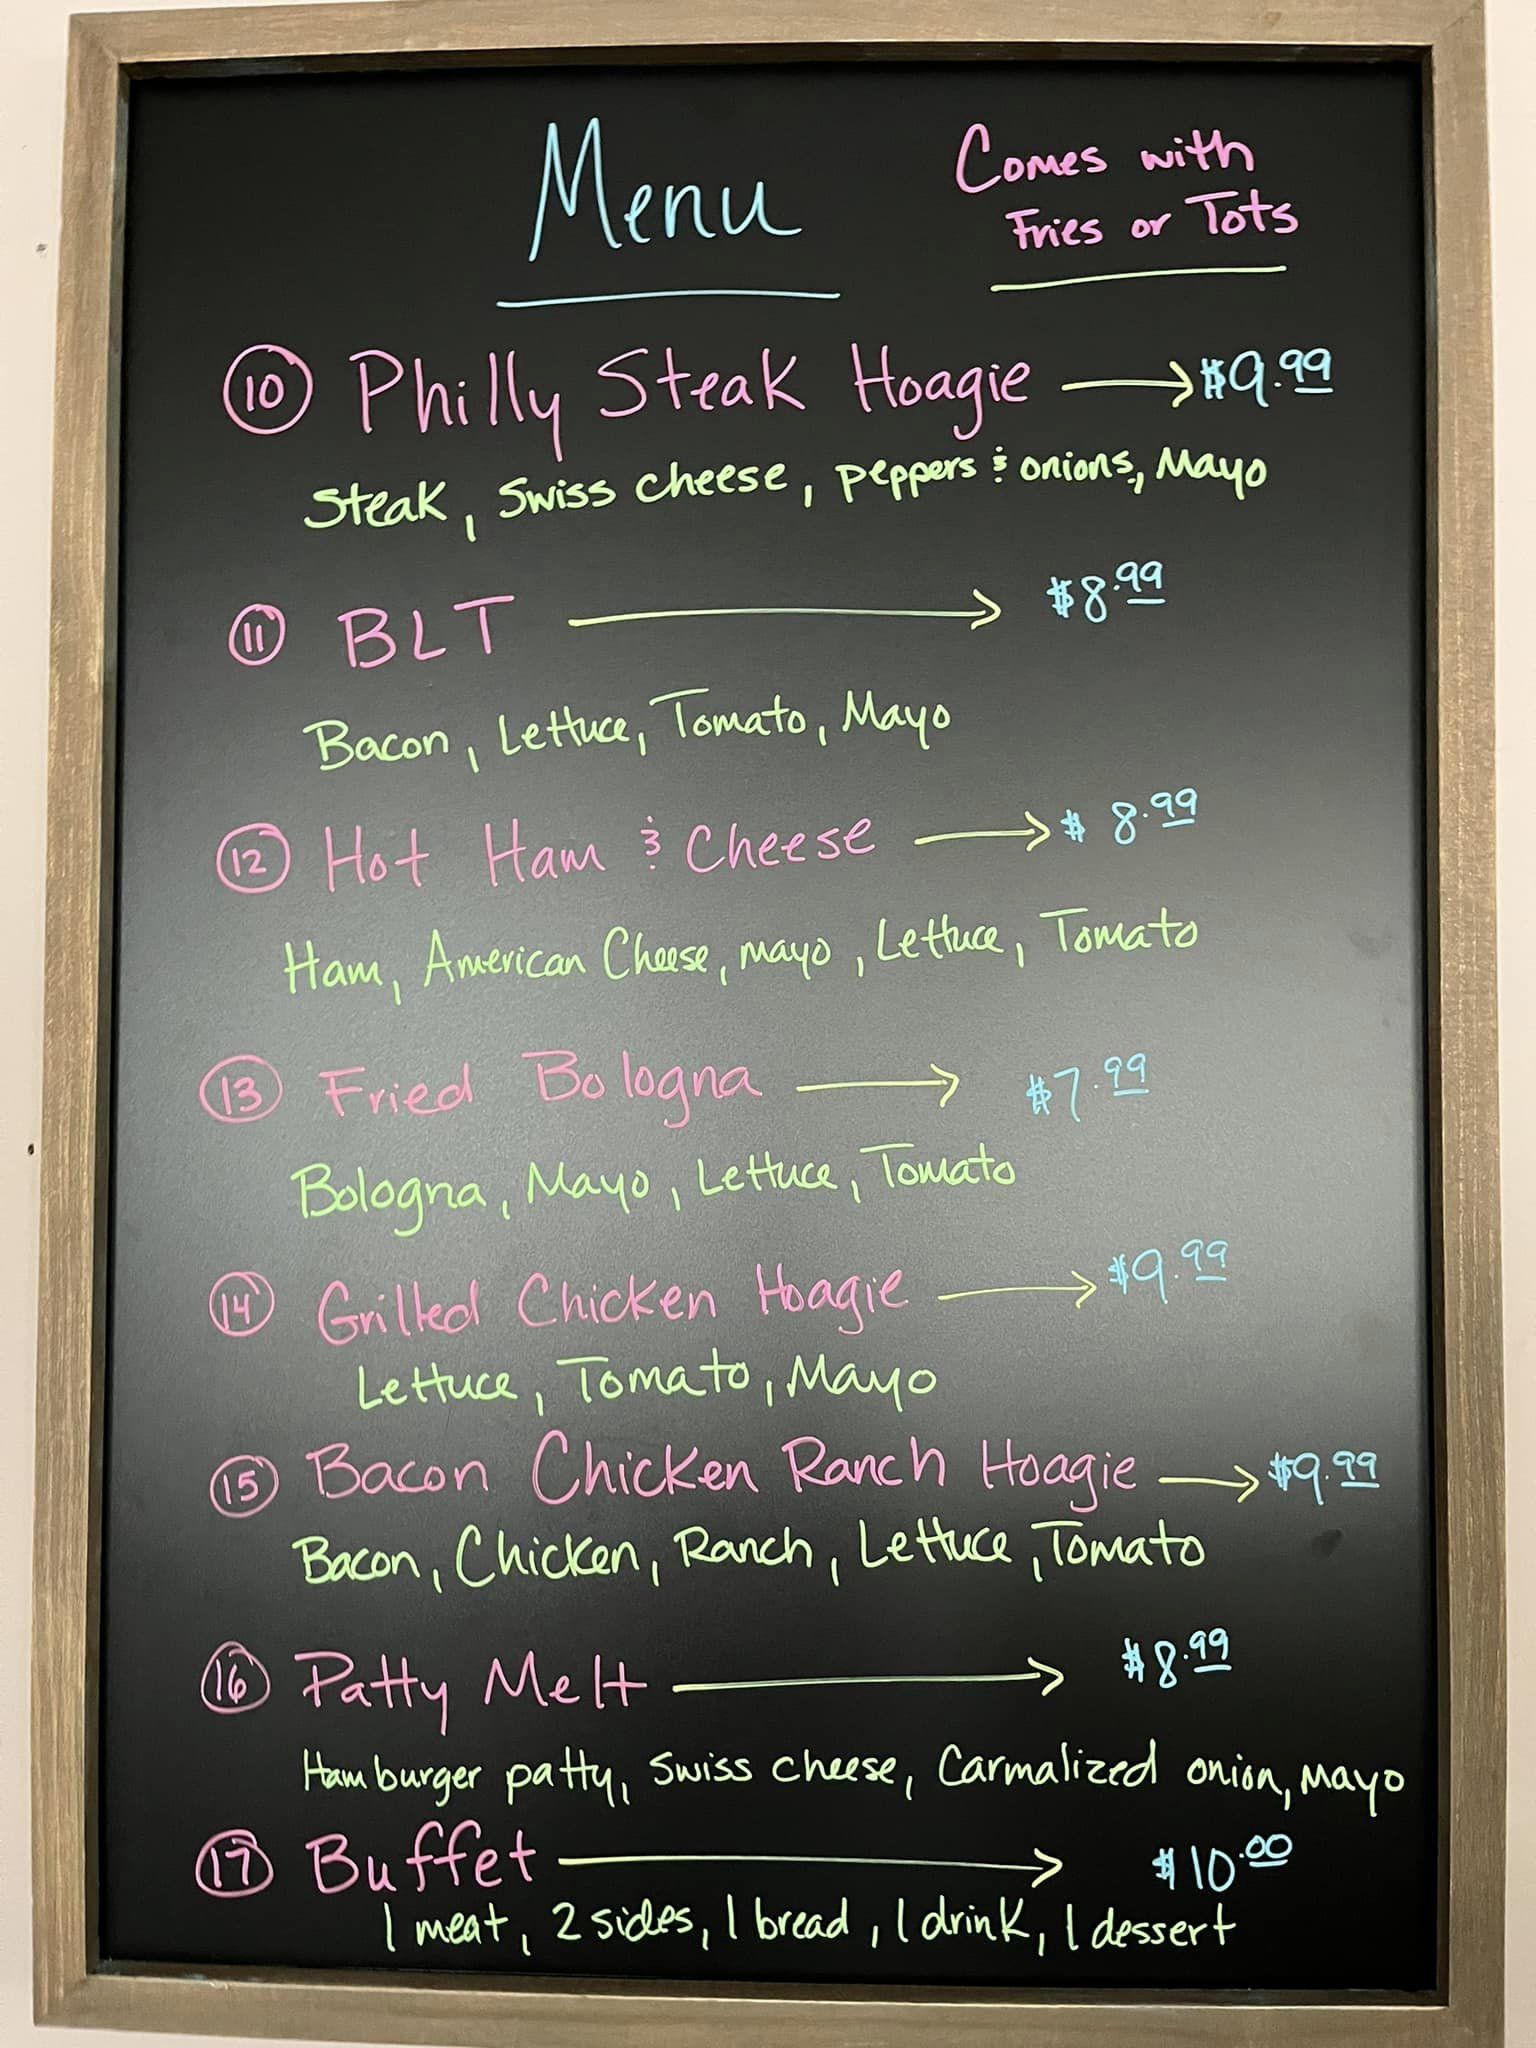 Menu
Comes with
Fries or Tots
10 Philly Steak Hoagie → $9.99
Steak, Swiss cheese, peppers & onions, Mayo
11 BLT → $8.99
Bacon, Lettuce, Tomato, Mayo
12 Hot Ham & Cheese → $8.99
Ham, American Cheese, mayo, Lettuce, Tomato
13 Fried Bologna → $7.99
Bologna, Mayo, Lettuce, Tomato
14 Grilled Chicken Hoagie → $9.99
Lettuce, Tomato, Mayo
15 Bacon Chicken Ranch Hoagie → $9.99
Bacon, Chicken, Ranch, Lettuce, Tomato
16 Patty Melt → $8.99
Hamburger patty, Swiss cheese, Carmalized onion, Mayo
17 Buffet → $10.00
1 meat, 2 sides, 1 bread, 1 drink, 1 dessert